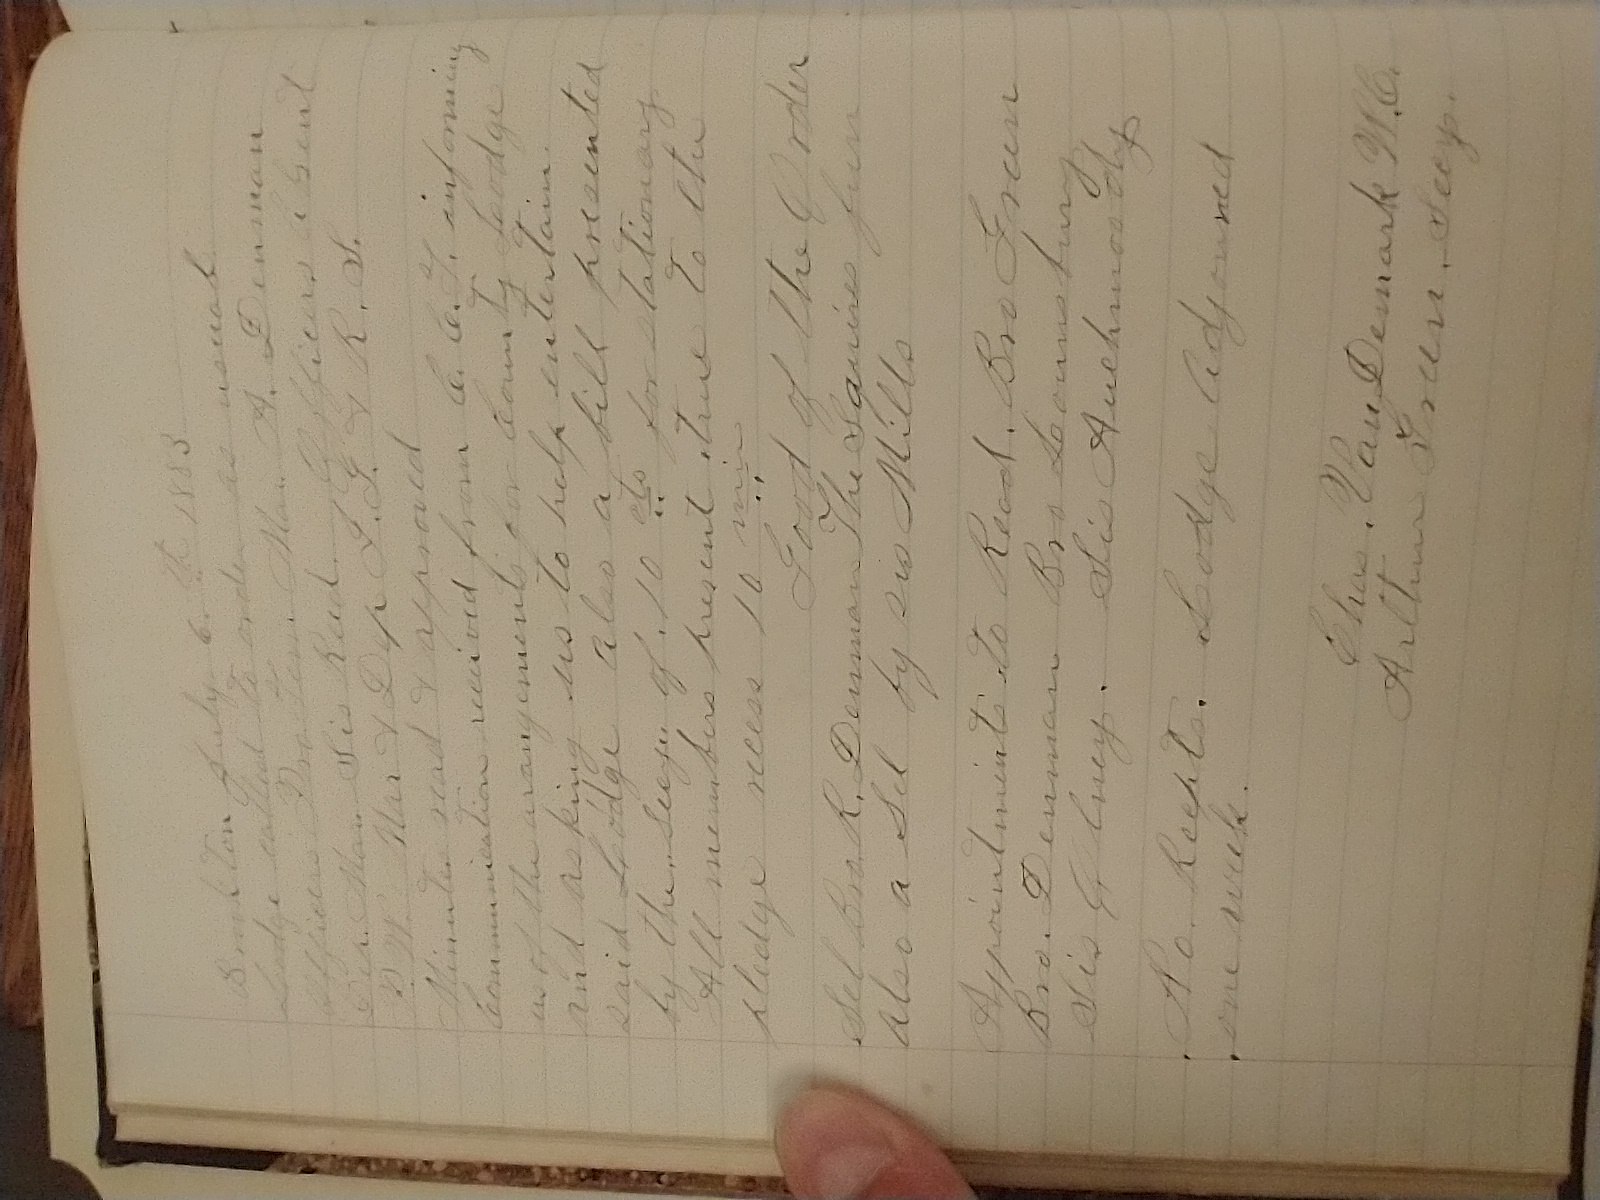 Brookton July 6.th 1883
Lodge called to order as usual.
Officers Pro Tem. Mar. A. Denman
Dep. Mar. Sis Reed. Officers Absent
P. W. Mar & Dep I. G. & R. S.
Minutes read & approved
Communication received from C. C. T. informing
us of the arangements for County Lodge
and asking us to help entertain.
said Lodge also a bill presented
by the Secy. of .10 cts for stationary
All members present true to the
pledge recess 10 min
Good of the Order
Sel Bro. R. Denman The Squires fun
also a Sel by sis Mills
Appointments to Read. Bro Green
Bro. Denman Bro Lounsbury
Sis Olney. Sis Auchmoody
No. Recpts. Lodge Adjourned
one week.
Chas. VanDemark W.C.
Arthur Green. Secy.